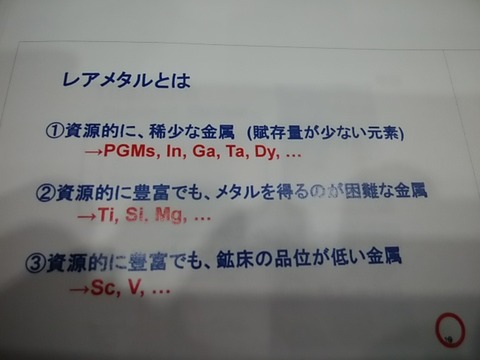 レアメタルとは
①資源的に、稀少な金属 (賦存量が少ない元素)
→PGMs, In, Ga, Ta, Dy, …
②資源的に豊富でも、メタルを得るのが困難な金属
→Ti, Si. Mg, …
③資源的に豊富でも、鉱床の品位が低い金属
→Sc, V, …